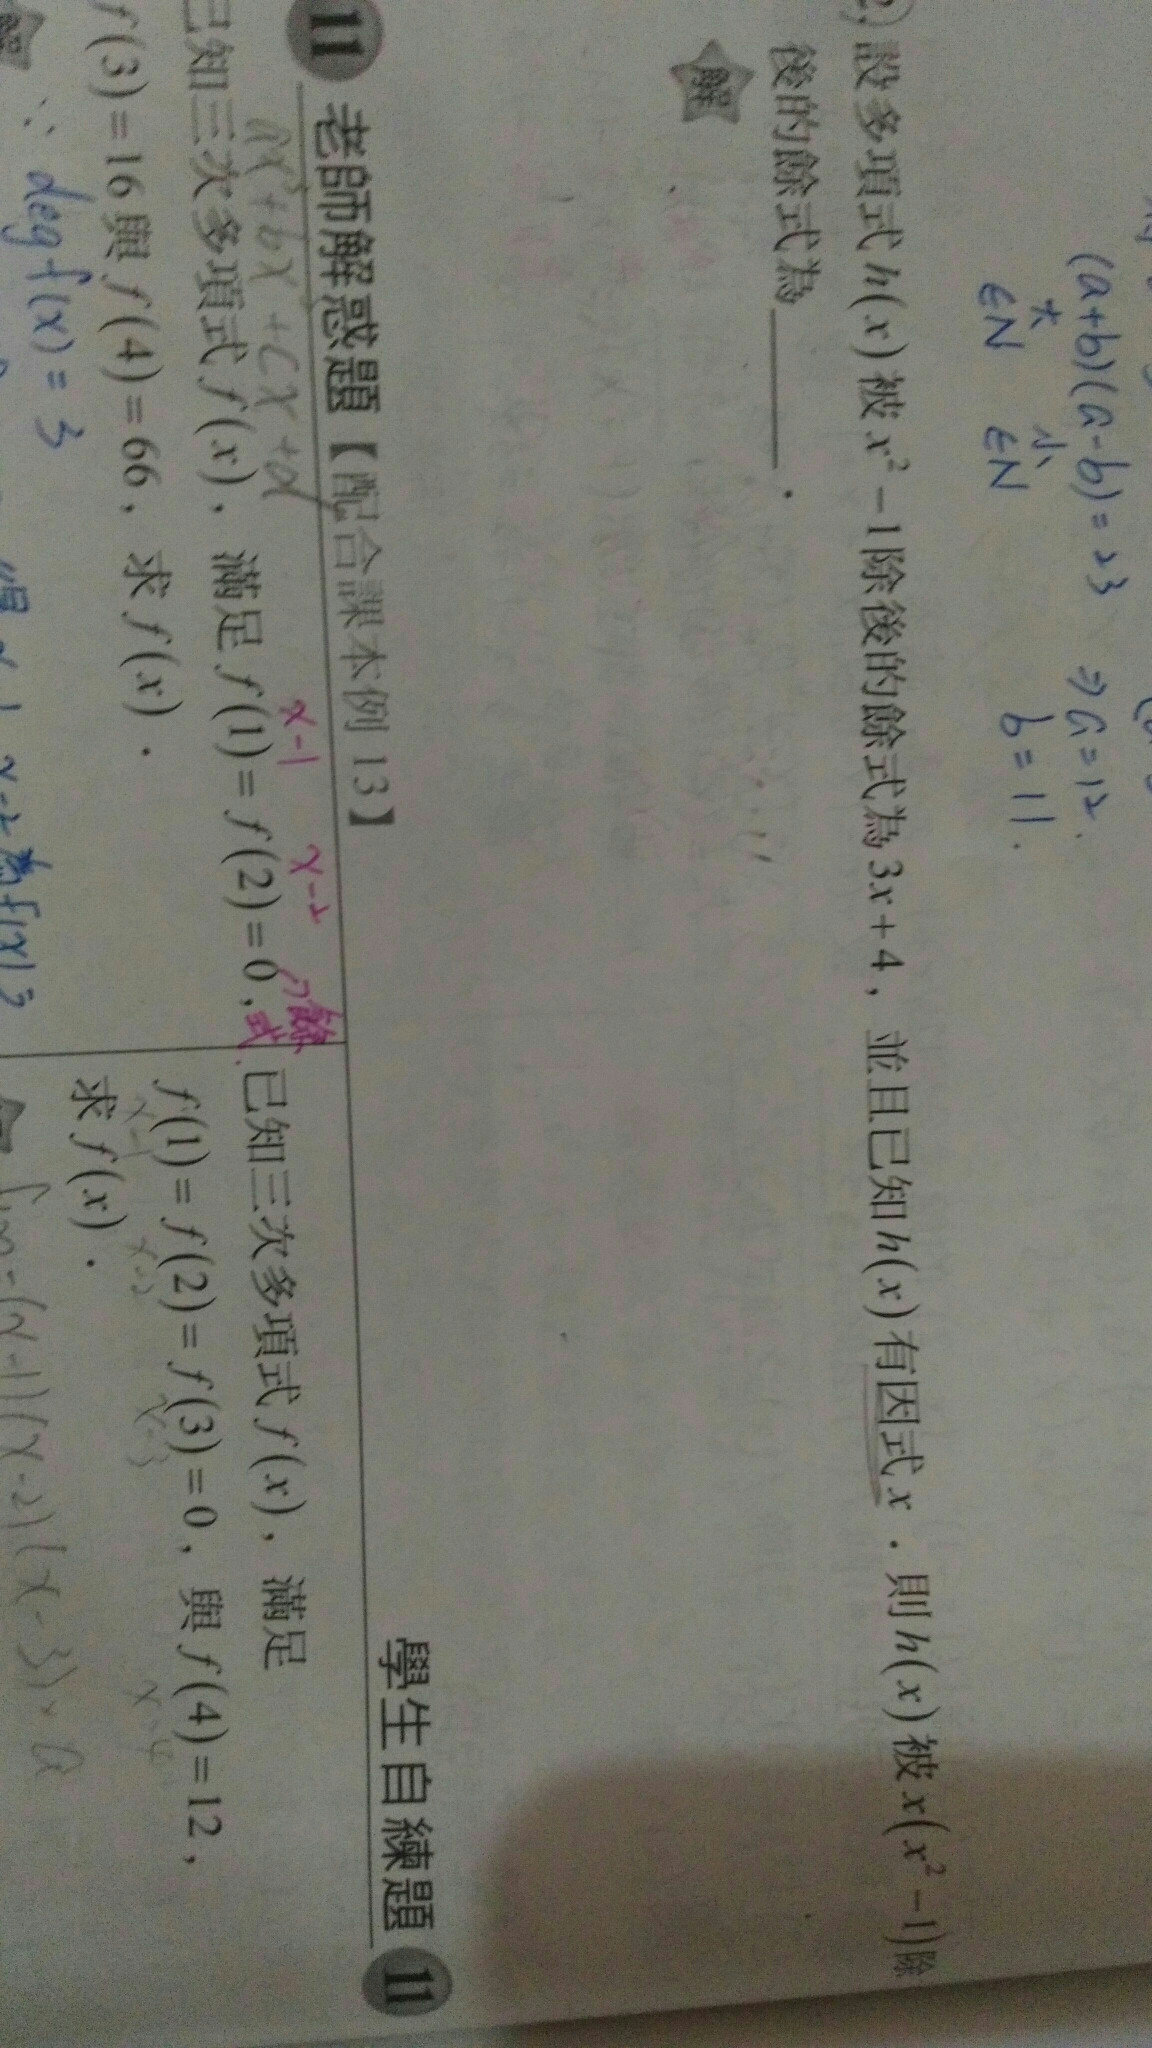 (a+b)(a-b)=23 ⇒ a=12.
大 小 b=11.
∈N ∈N
設多項式h(x)被x²-1除後的餘式為3x+4，並且已知h(x)有因式x．則h(x)被x(x²-1)除
後的餘式為＿＿＿．
解
11 老師解惑題【配合課本例13】
ax³+bx²+cx+d
x-1 x-2
餘式
已知三次多項式f(x)，滿足f(1)=f(2)=0，
f(3)=16與f(4)=66，求f(x)．
解
∵ deg f(x)=3
x-2 f(x)
學生自練題 11
已知三次多項式f(x)，滿足
f(1)=f(2)=f(3)=0，與f(4)=12，
x-1 x-2 x-3 x-4
求f(x)．
f(x)=(x-1)(x-2)(x-3)·a